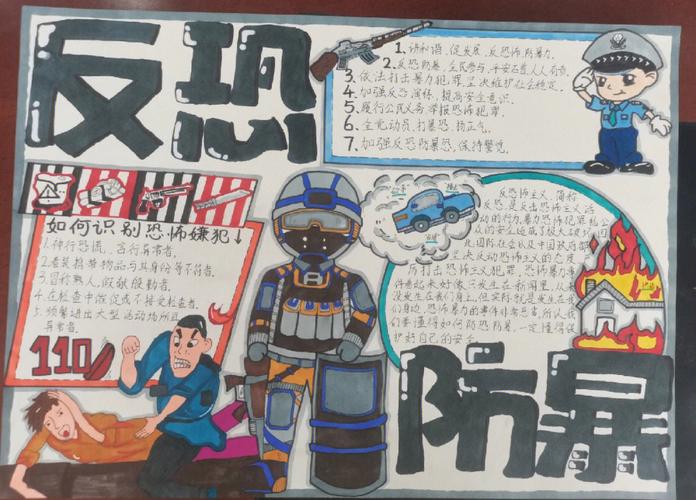 反恐
1、讲和谐、促发展、反恐怖、防暴力。
2、反恐防暴、全民参与、平安石益人人有责
3、依法打击暴力犯罪坚决维护社会稳定。
4、加强反恐演练、提高安全意识。
5、履行公民义务、举报恐怖犯罪。
6、全党动员、打暴恐、扬正气。
7、加强反恐防暴恐、保持警觉。
如何识别恐怖嫌犯↓
1.神行恐慌、言行异常者。
2.着装携带物品与其身份等不符者。
3.冒称熟人、假献殷勤者。
4.在检查中催促或不接受检查者。
5.频繁进出大型活动场所且
异常者。
110
反恐怖主义,简称
反恐,是反击恐怖主义活
动的行为,暴力恐怖犯罪
坚决反动恐怖主义的态度
厉打击恐怖主义犯罪、恐怖暴力事
件看起来好像只发生在新闻里,从来
没发生在我们身上,但实际就是发生在我
们身边,恐怖暴力的事件时有
要懂得如何防恐防暴,一定懂得保
护好自己的安全
防暴